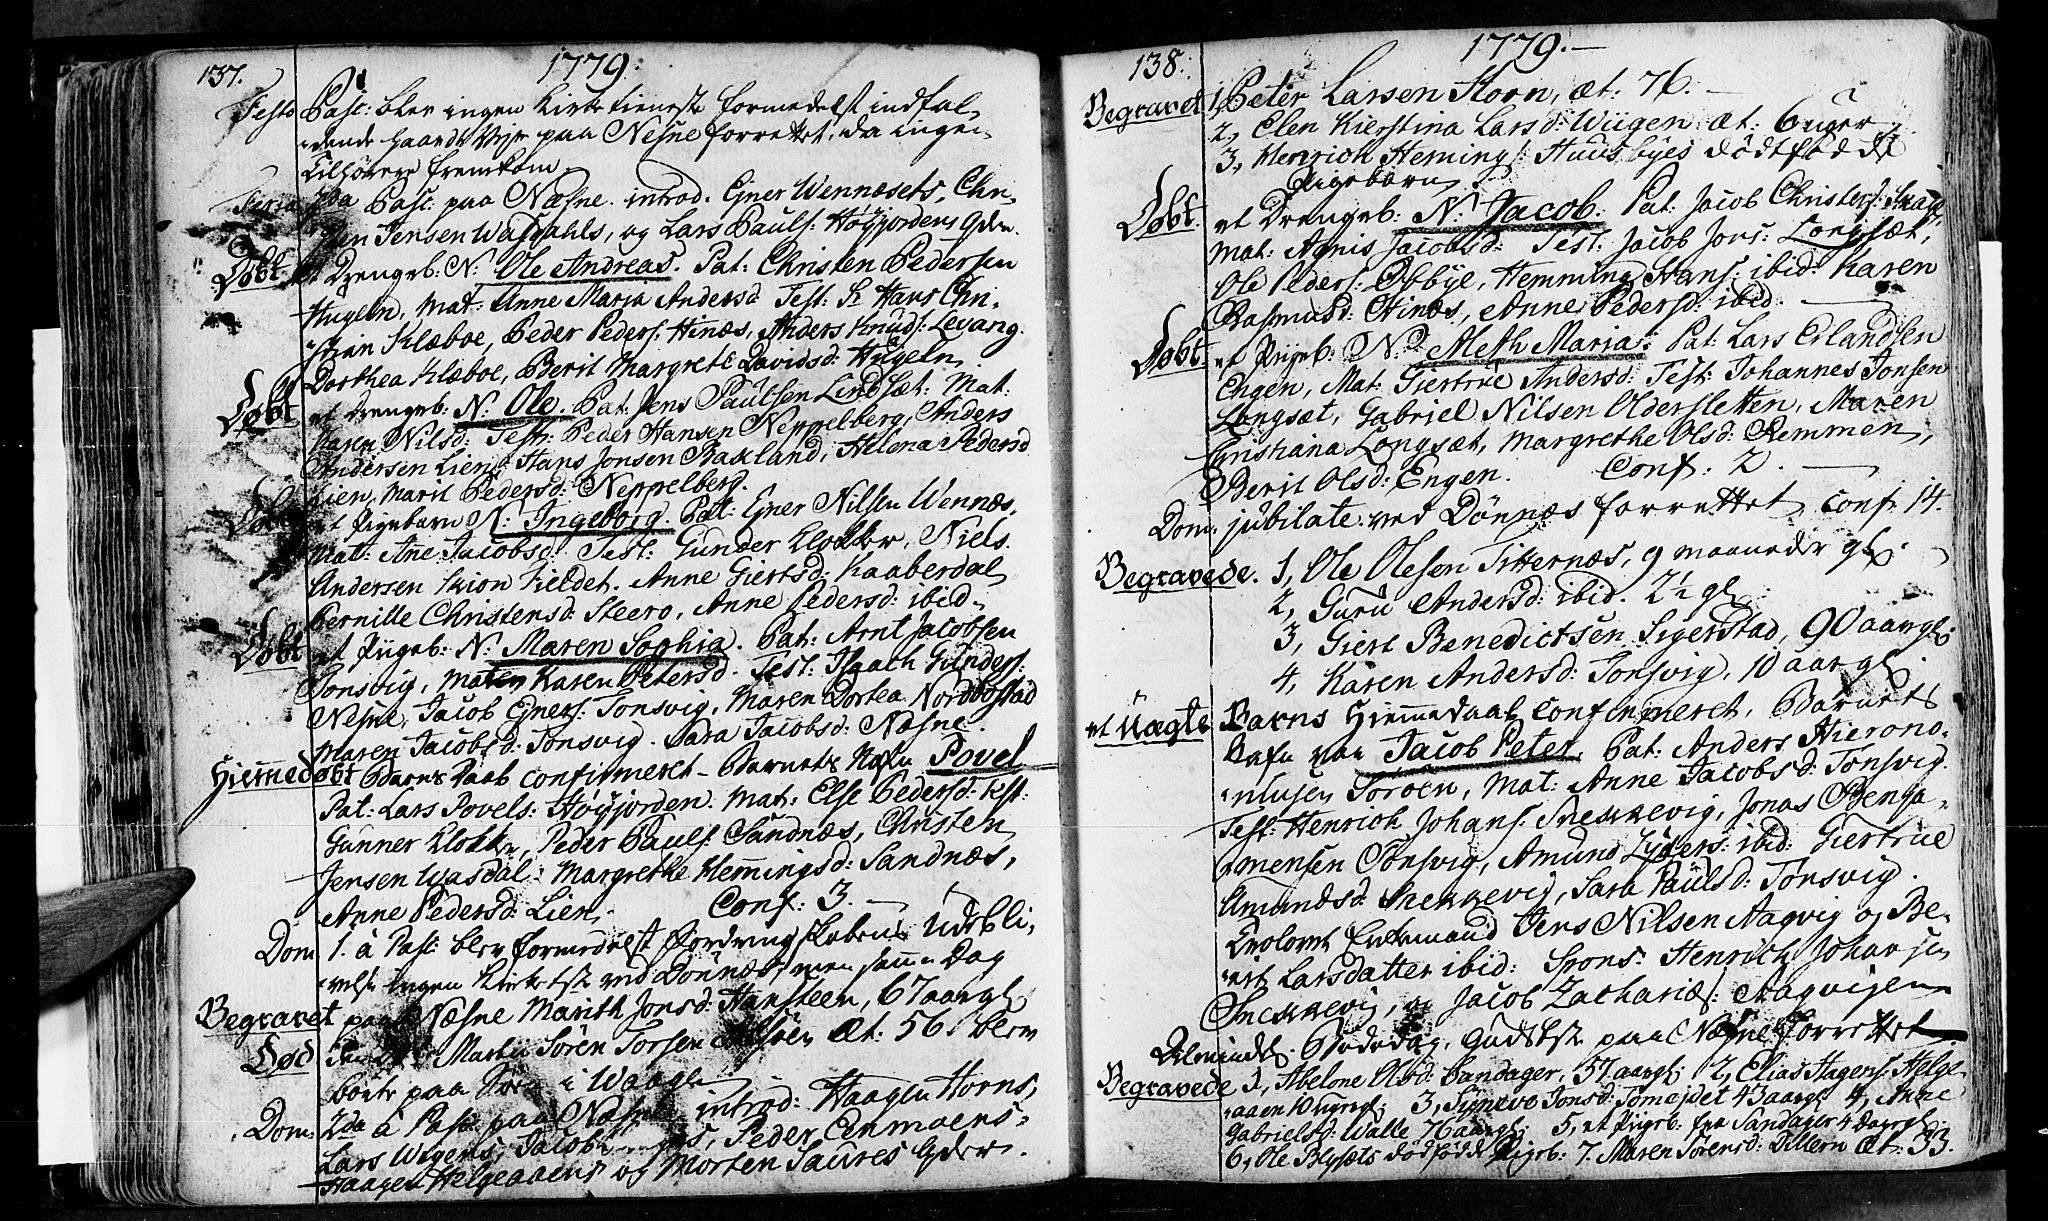 137. 1779.
Festo Pasc: blev ingen Kirketieneste formedelst indfal-
dende haardt Vejr paa Nesne forrettet, da ingen
Tilhørere fremkom
Feria 2da Pasc: paa Næsne. introd. Ejner Wennæsets, Chri-
sten Jensen Wasdahls, og Lars Pauls: Høÿjordens qder.
Døbt et Drengeb: N: Ole Andreas. Pat: Christen Pedersen
Hugeln, Mat: Anne Maria Andersd Test: Hr Hans Chri-
stian Klæboe, Peder Peders: Hinæs, Anders Knuds: Levang
Dorthea Klæboe, Berit Margrete Davidsd: Hugeln
Døbt et Drengeb: N: Ole. Pat: Jens Paulsen Lindsæt: Mat:
Karen Nilsd: Test: Peder Hansen Neppelberg, Anders
Andersen Lien, Hans Jonsen Baxland, Helena Pedersd
Lien, Marit Pedersd: Neppelberg.
Døbt et Pigebarn N: Ingeborg Pat: Ejner Nilsen Wennæs,
Mat: Ane Jacobsd: Test: Gunder Klokker, Niels
Andersen Skionkieldet. Anne Giertsd: Kaaberdal
Pernille Christensd: Steero, Anne Pedersd: ibid.
Døbt et Pigeb: N: Maren Sophia. Pat: Arnt Jacobsen
Tonsvig, Mater Karen Petersd. Test: Isaach Gunders:
Nesne, Jacob Ejners: Tonsvig, Maren Dortea Nordbostad
Maren Jacobsd: Tonsvig. Sara Jacobsd: Næsne.
Hiemmedøbt Barns Daab confirmeret - Barnets Nafn Povel
Pat: Lars Povels: Høÿjorden. Mat: Else Pedersd: Test:
Gunner Klokker, Peder Pauls: Sandnæs, Christen
Jensen Wasdal. Margrethe Hemmingsd: Sandnæs,
Anne Pedersd: Lien. Conf: 3.
Dom. 1. à Pasc: blev formedelst Fordringskabens Udebli-
velse ingen Kirketste ved Dönnæs, men samme Dag
Begravet paa Næsne Marith Jonsd: Hansteen, 67 aar gl
Død Martin Sören Torsen Æt: 56, blev
borte paa Söen i Waagen
Dom: 2da à Pasc: paa Næsne introd: Haagen Horns,
Lars Wigens, Jacob Peder Einmoens
Haagen Helgeaaens og Morten Saures Qder.
138. 1779.
Begravet 1, Peter Larsen Horn, æt. 76.
2, Elen Kierstina Lars d: Wiigen æt: 6 uger
3, Henrich Hemings: Huusbÿes dødtfødde
Pigebarn
Døbt. et Drengeb: N: Jacob. Pat: Jacob Christens:
Mat: Agnis Jacobsd: Test: Jacob Jons: Longsæt,
Ole Peders: Ytbÿe, Hemming Hans: ibid: Karen
Rasmusd: Hinæs, Anne Pedersd: ibid.
Døbt. et Pigeb: N: Meth Maria: Pat: Lars Erlandsen
Engen, Mat: Giertrue Andersd: Test: Johannes Jonsen
Longsæt, Gabriel Nilsen Oldersletten, Maren
Cristiana Longsæt, Margrethe Olsd: Remmen,
Berit Olsd: Engen. Conf: 2.
Dom. jubilate ved Dönnæs forrettet, conf. 14.
Begravede. 1, Ole Olesen Titternæs, 9 maaneder gl.
2, Guru Andersd: ibid. 2½ gl
3, Giert Benedictsen Sigerstad, 90 aar gl:
4, Karen Andersd: Tonsvig, 10 aar gl
et Uægte Barns Hiemmedaab confirmeret, Barnets
Nafn var Jacob Peter. Pat: Anders Hierono-
musen Töröen, Mat: Anne Jacobsd: Tonsvig.
Test: Henrich Johans: Snekkevig, Jonas Benja-
mensen Tonsvig, Amund Zÿders: ibid: Giertrue
Amundsd: Snekkevig, Sara Paulsd: Tonsvig.
Trolovet Enkemand Jens Nilsen Aagvig og Be-
rit Larsdatter ibid: Spons: Henrich Johansen
Snekkevig, og Jacob Zacharias: Aagvigen
Almindel. Bededag, Gudstste paa Næsne forrettet
Begravede 1, Abelone Olsd: Sandager, 57 aar gl: 2, Elias Hagens: Helge-
aaen 10 uger gl: 3, Sÿneve Jonsd: Tomejdet 43 aar gl 4, Anne
Gabrielsd: Walle 76 aar gl: 5, et Pigeb: fra Sandager 4 Dage gl.
6, Ole Blysæts dødfødde Pigeb: 7. Maren Sörensd: Dillern Æt: 33.